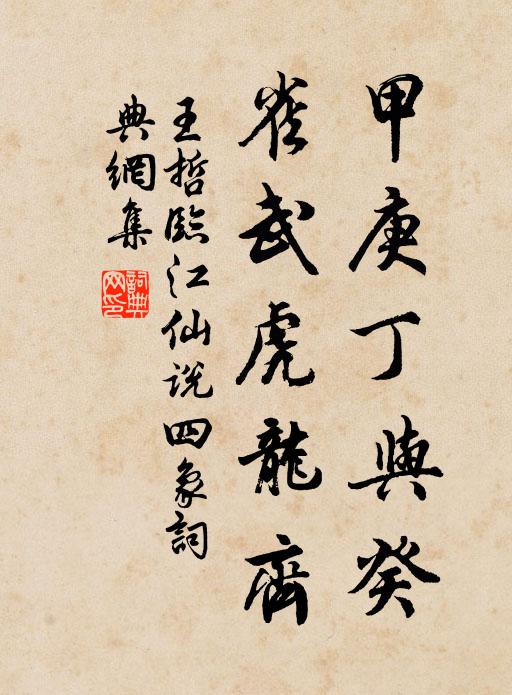 甲庚丁與癸
雀武虎龍齊
王哲臨江仙說四象詞
典網集
詞典网印